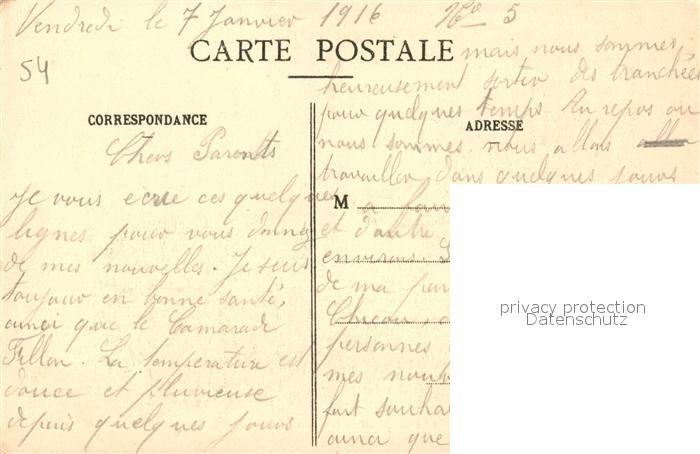 Vendredi le 7 Janvier 1916 No 5
54
CARTE POSTALE
CORRESPONDANCE
Chers Parents
Je vous ecrie ces quelques
lignes pour vous donner
de mes nouvelles. Je suis
toujour en bonne santé,
ainci que le Camarade
Fillon. La temperature est
douce et pluvieuse
depuis quelques jours
mais nous sommes
heureusement sortie des tranchées
pour quelques temps. En repos ou
ADRESSE
nous sommes. nous allons
travailler dans quelques jours
M
et d'autre
environs
de ma par
personnes
mes nou
fort souhai
ainci que
privacy protection
Datenschutz